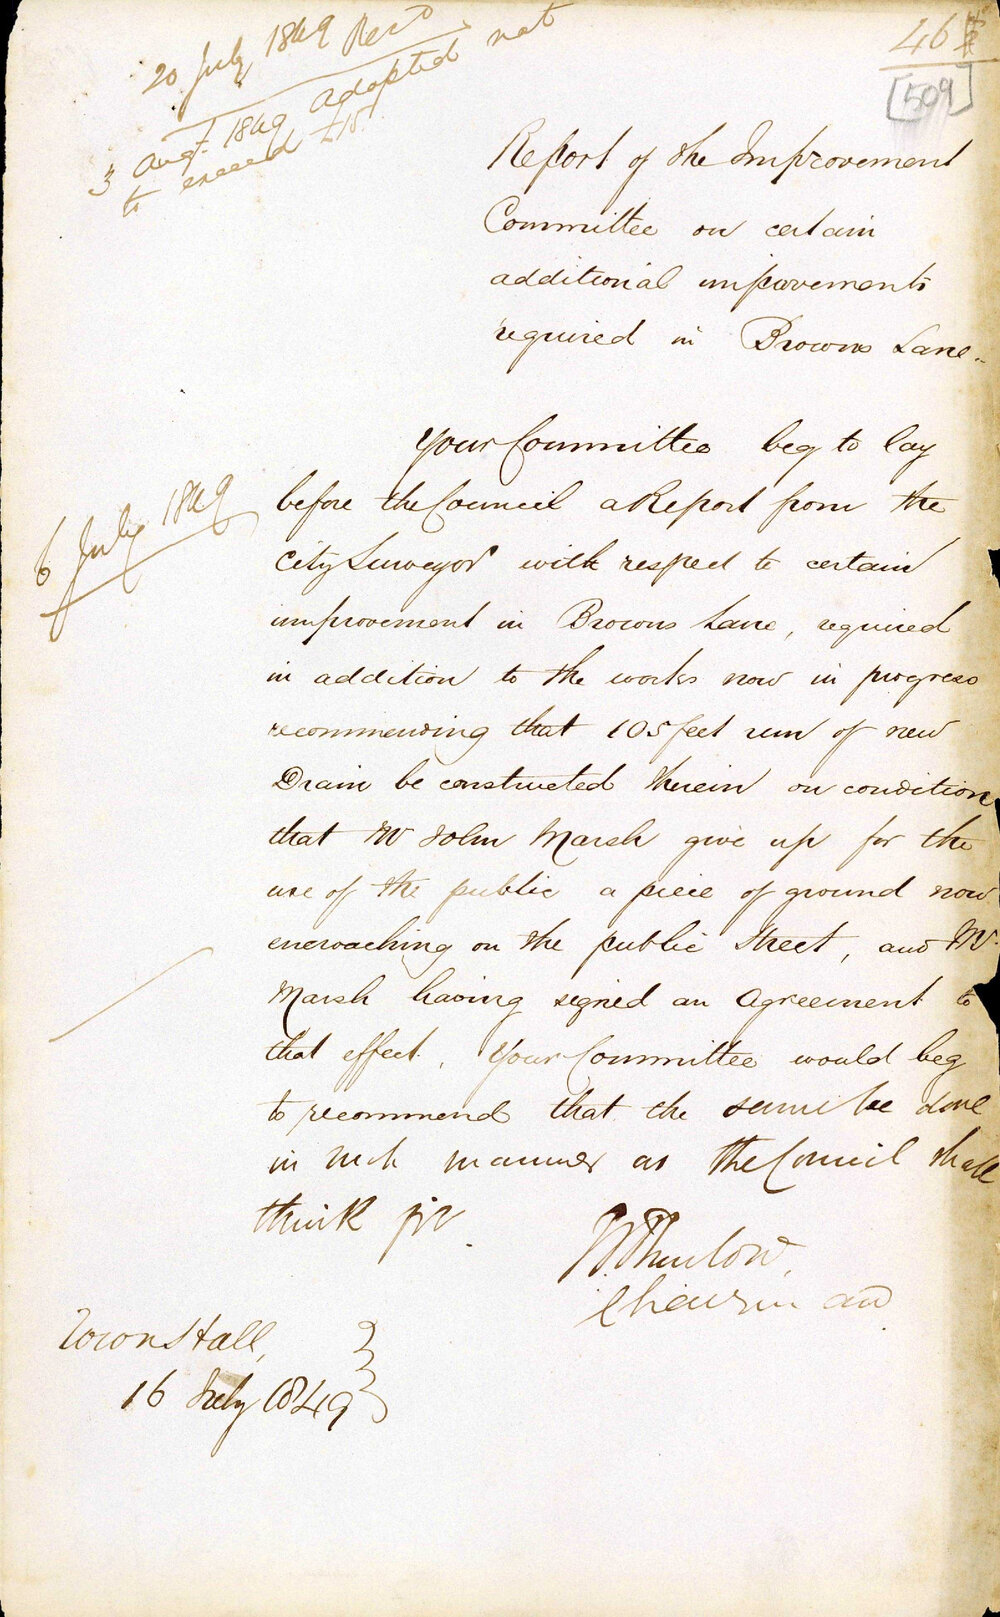 20 July 1849 Recd
3 Augt. 1849 adopted not
to exceed £15
46
[509]
Report of the Improvement
Committee on certain
additional improvements
required in Browns Lane.
6 July 1849
Your Committee beg to lay
before the Council a Report from the
City Surveyor with respect to certain
improvement in Browns Lane, required
in addition to the works now in progress
recommending that 105 feet run of new
Drain be constructed therein on condition
that Mr John Marsh give up for the
use of the public a piece of ground now
encroaching on the public street, and Mr.
Marsh having signed an Agreement to
that effect. Your Committee would beg
to recommend that the same be done
in such manner as the Council shall
think fit.
Thurlow,
Chairman
Town Hall,
16 July 1849